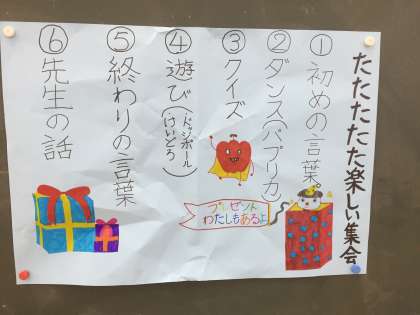 たたたたた楽しい集会
①初めの言葉
②ダンス(パプリカ)
③クイズ
④遊び(ドッジボール
けいどろ)
⑤終わりの言葉
⑥先生の話
プレゼント
わたしもあるよ